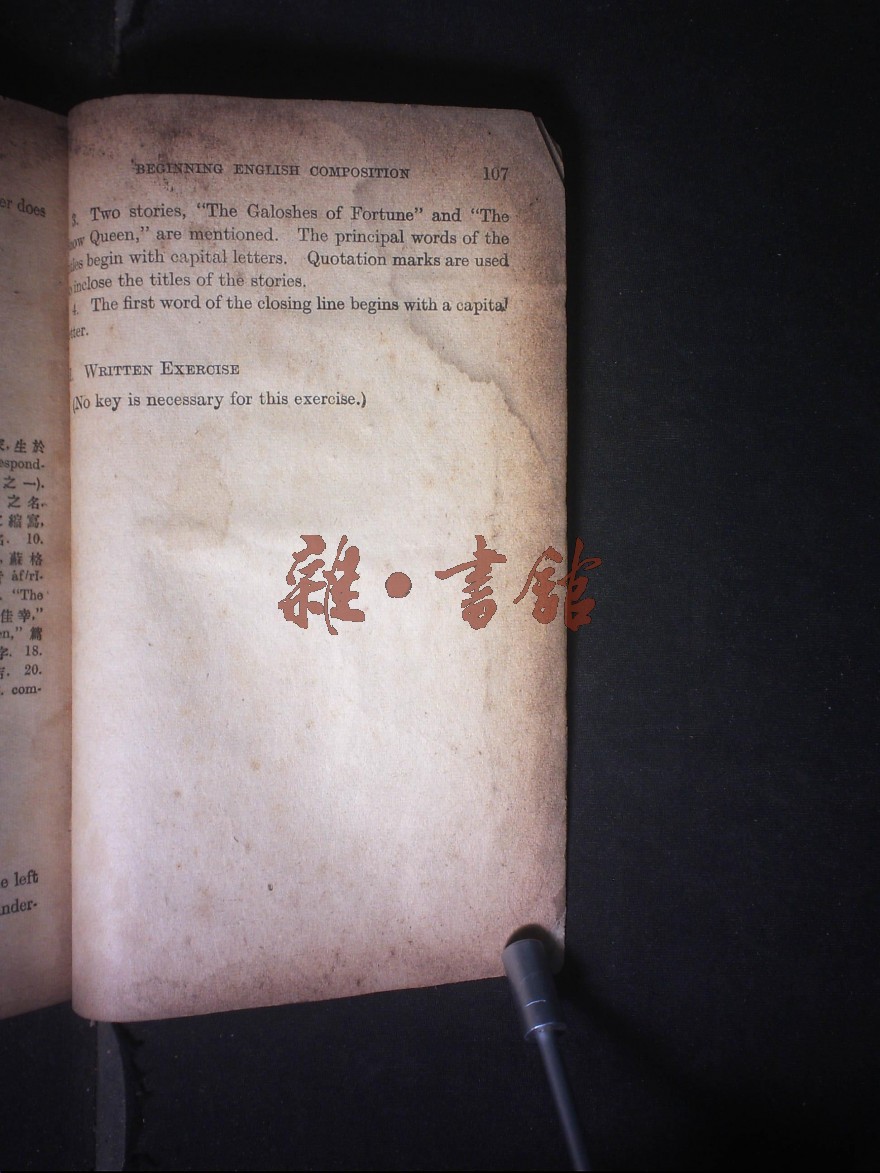 er does
生於
respond-
之一).
之名.
縮寫,
10.
蘇格
af/rI-
"The
佳幸,"
en," 篇
字. 18.
20.
com-
e left
nder-
BEGINNING ENGLISH COMPOSITION 107
3. Two stories, "The Galoshes of Fortune" and "The
now Queen," are mentioned. The principal words of the
tles begin with capital letters. Quotation marks are used
inclose the titles of the stories.
4. The first word of the closing line begins with a capital
tter.
WRITTEN EXERCISE
(No key is necessary for this exercise.)
雜•書館